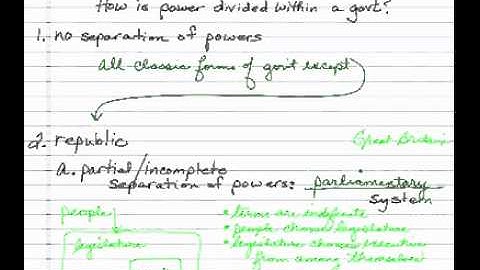 How is power divided within a govt?
1. no separation of powers
All classic forms of gov't except
2. republic
Great Britain
a. partial/incomplete
separation of powers: parliamentary
system
people
• terms are indefinite
• people choose legislature
legislature
• legislature chooses executive
from among themselves